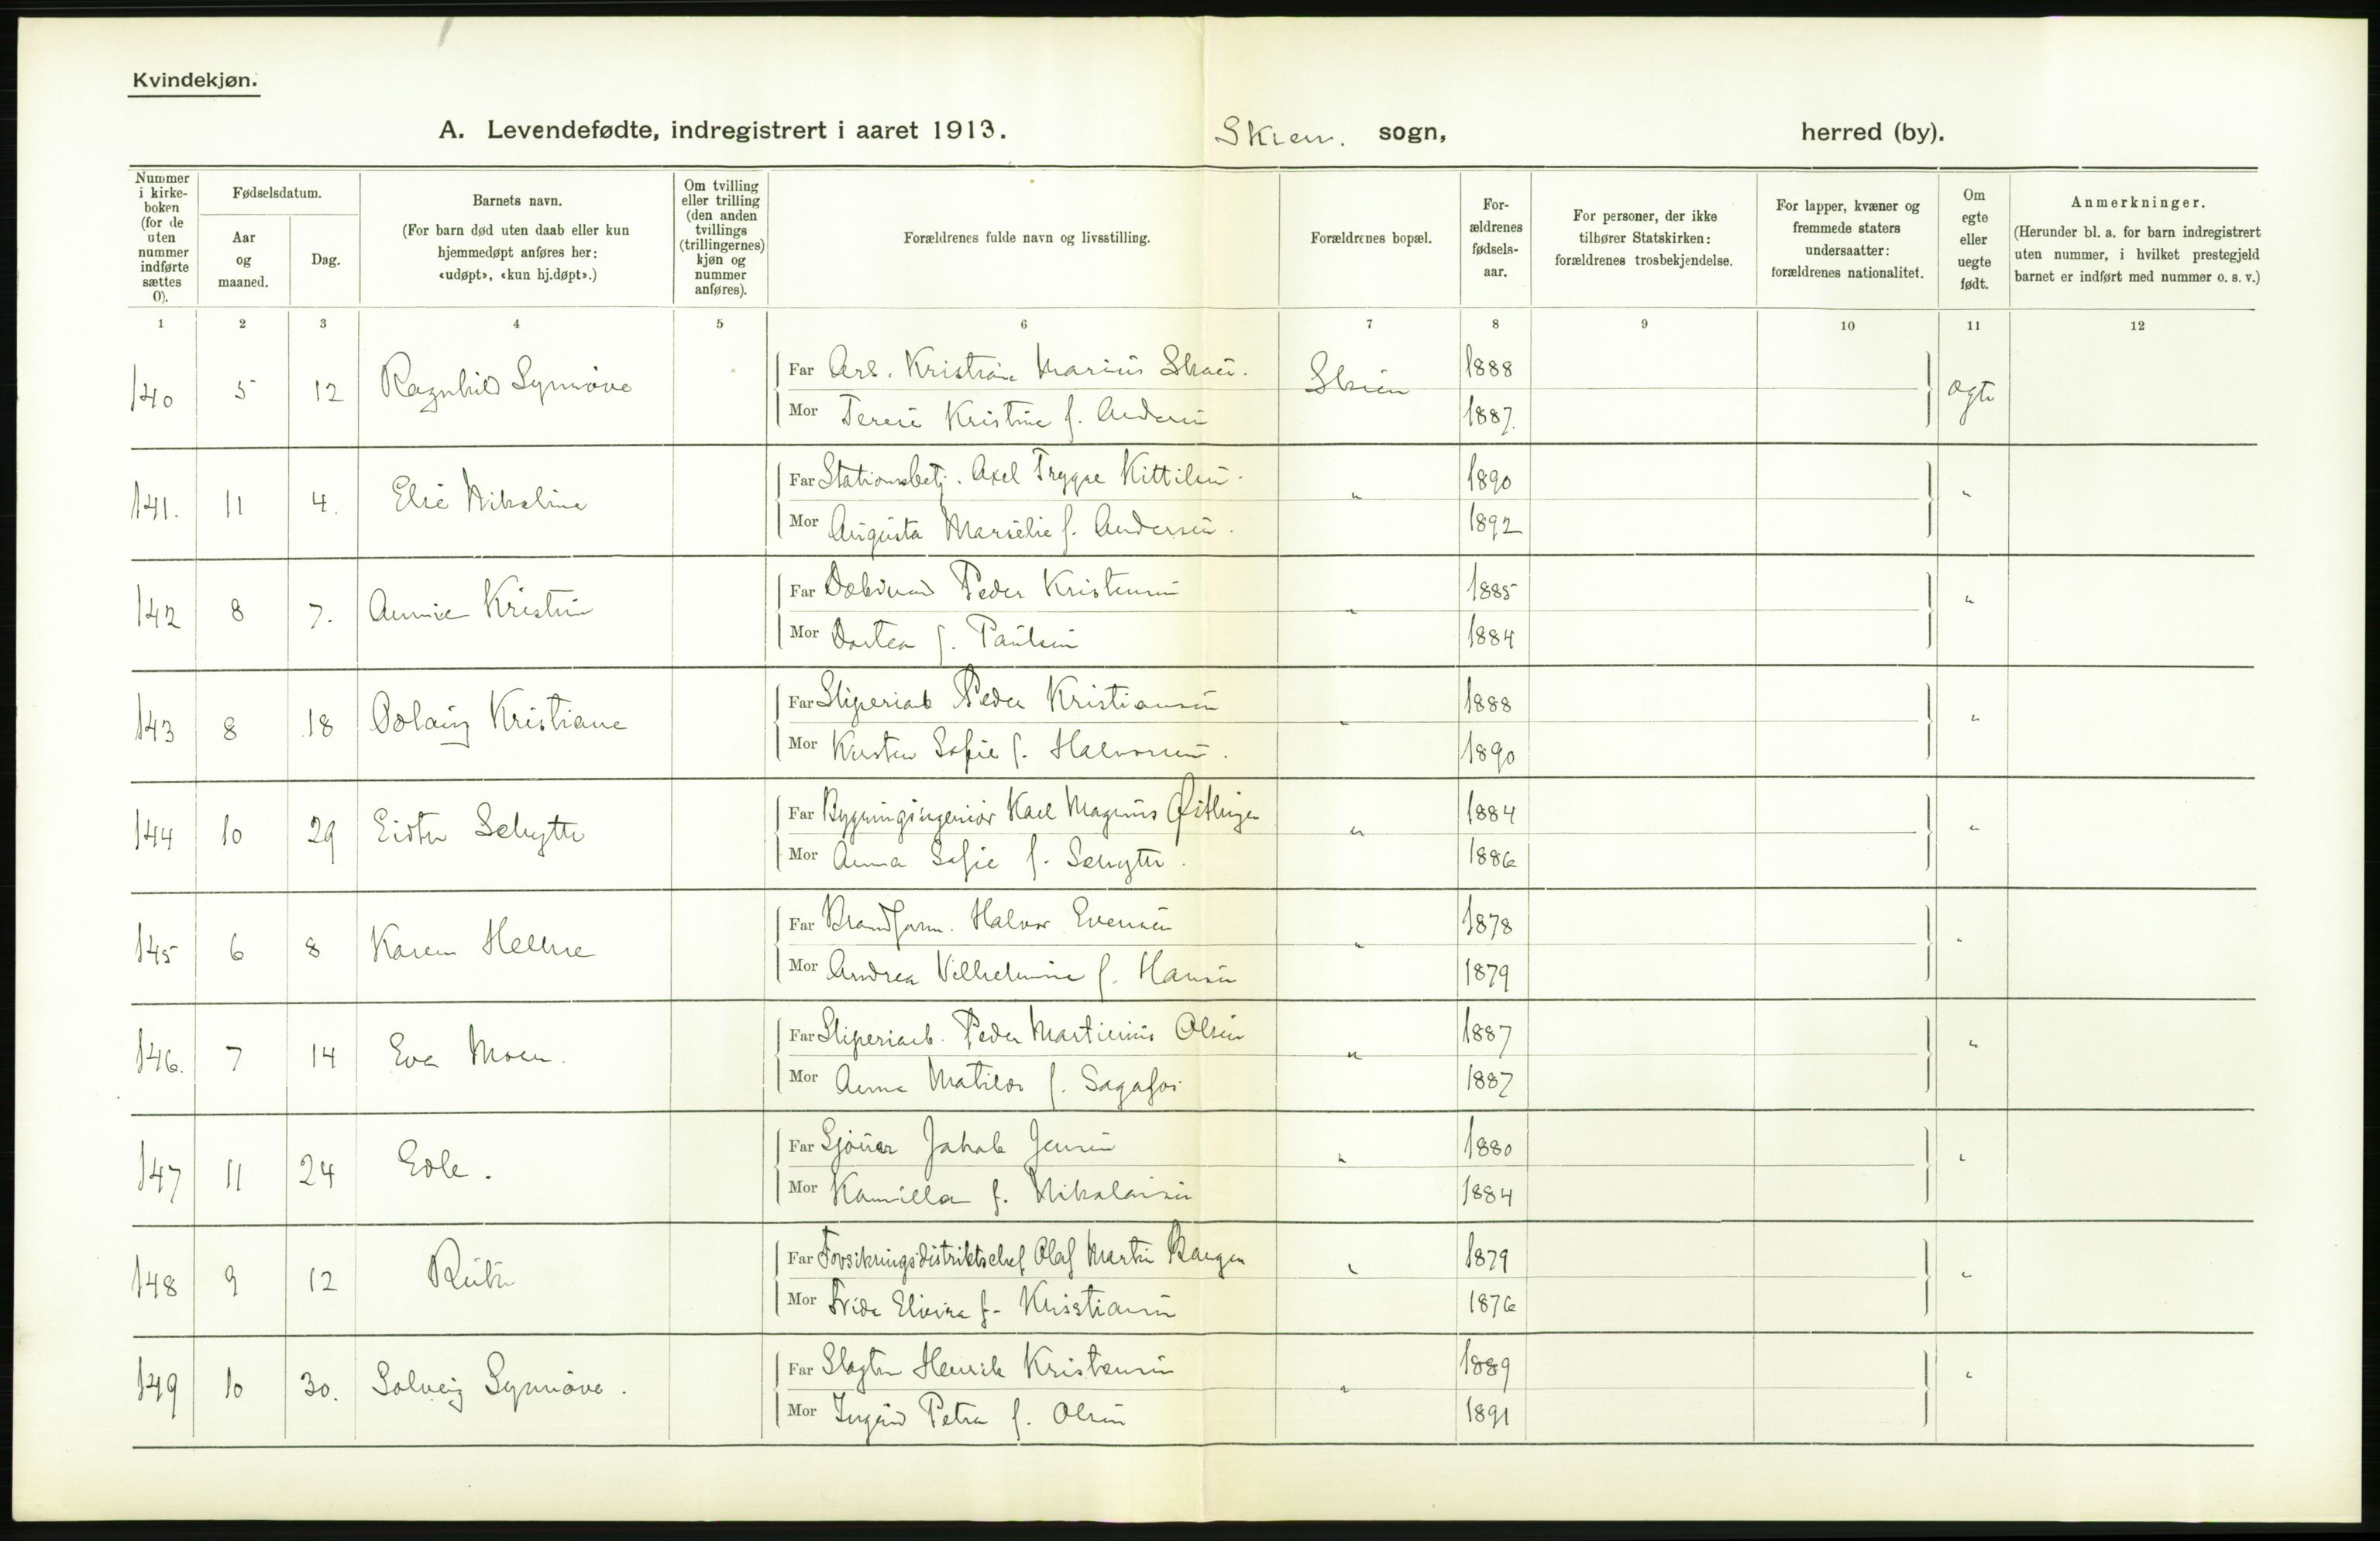 Kvindekjøn.
A. Levendefødte, indregistrert i aaret 1913. Skien. sogn, herred (by).
Nummer i kirke-boken (for de uten nummer indførte sættes 0).
Fødselsdatum.
Aar og maaned.
Dag.
Barnets navn.
(For barn død uten daab eller kun hjemmedøpt anføres her: «udøpt», «kun hj.døpt».)
Om tvilling eller trilling (den anden tvillings (trillingernes) kjøn og nummer anføres).
Forældrenes fulde navn og livsstilling.
Forældrenes bopæl.
For-ældrenes fødsels-aar.
For personer, der ikke tilhører Statskirken: forældrenes trosbekjendelse.
For lapper, kvæner og fremmede staters undersaatter: forældrenes nationalitet.
Om egte eller uegte født.
Anmerkninger.
(Herunder bl. a. for barn indregistrert uten nummer, i hvilket prestegjeld barnet er indført med nummer o. s. v.)
1 2 3 4 5 6 7 8 9 10 11 12
140 5 12 Ragnhild Synnøve Far Arb. Kristian Marius Skien 1888 ægte
Mor Terese Kristine f. Andersen 1887.
141. 11 4. Elsé Nikoline Far Stationsbetj. Axel Trygve Kittilsen. " 1890 "
Mor Augusta Marselie f. Andersen. 1892
142 8 7. Annie Kristin Far Peder Kristensen " 1885 "
Mor Dortea f. Paulsen 1884
143 8 18 Kristiane Far Sliperiarb Peder Kristiansen " 1888 "
Mor Kirsten Sofie f. Halvorsen. 1890
144 10 29 Schytte Far Bygningsingeniør Karl Magnus " 1884 "
Mor Anna Sofie f. Schytte. 1886
145 6 8 Karen Helene Far Halvor Evensen " 1878 "
Mor Andrea Vilhelmine f. Hansen 1879
146. 7 14 Eva Moen. Far Sliperiarb. Peder Martinius Olsen " 1887 "
Mor Anna Matilde f. Sagafos 1887
147 11 24 Edle. Far Jakob Jensen " 1880 "
Mor Kamilla f. Nikolaisen 1884
148 9 12 Ruth Far Forsikringsdistriktschef Olaf Martin " 1879 "
Mor Frida Elvira f. Kristiansen 1876
149 10 30. Solveig Synnøve. Far Slagter Henrik Kristensen " 1889 "
Mor Ingrid Petra f. Olsen 1891